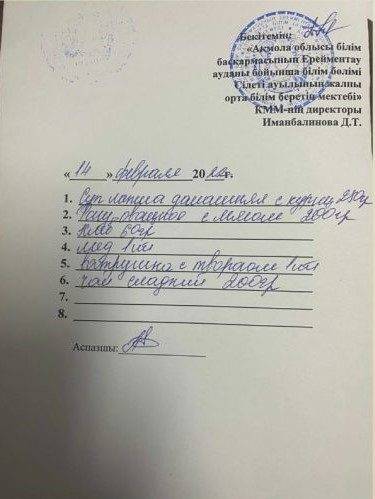 Бекітемін:
«Ақмола облысы білім
басқармасының Ерейментау
ауданы бойынша білім бөлімі
Сілеті ауылының жалпы
орта білім беретін мектебі»
КММ-нің директоры
Иманбалинова Д.Т.
« 14 » февраля 20 г.
1. Суп лапша домашняя с курицей 250гр
2. с мясом 200гр
3. Хлеб 60гр
4. мед 1
5. Ватрушка с творогом 1
6. чай сладкий 200гр
7.
8.
Аспазшы: